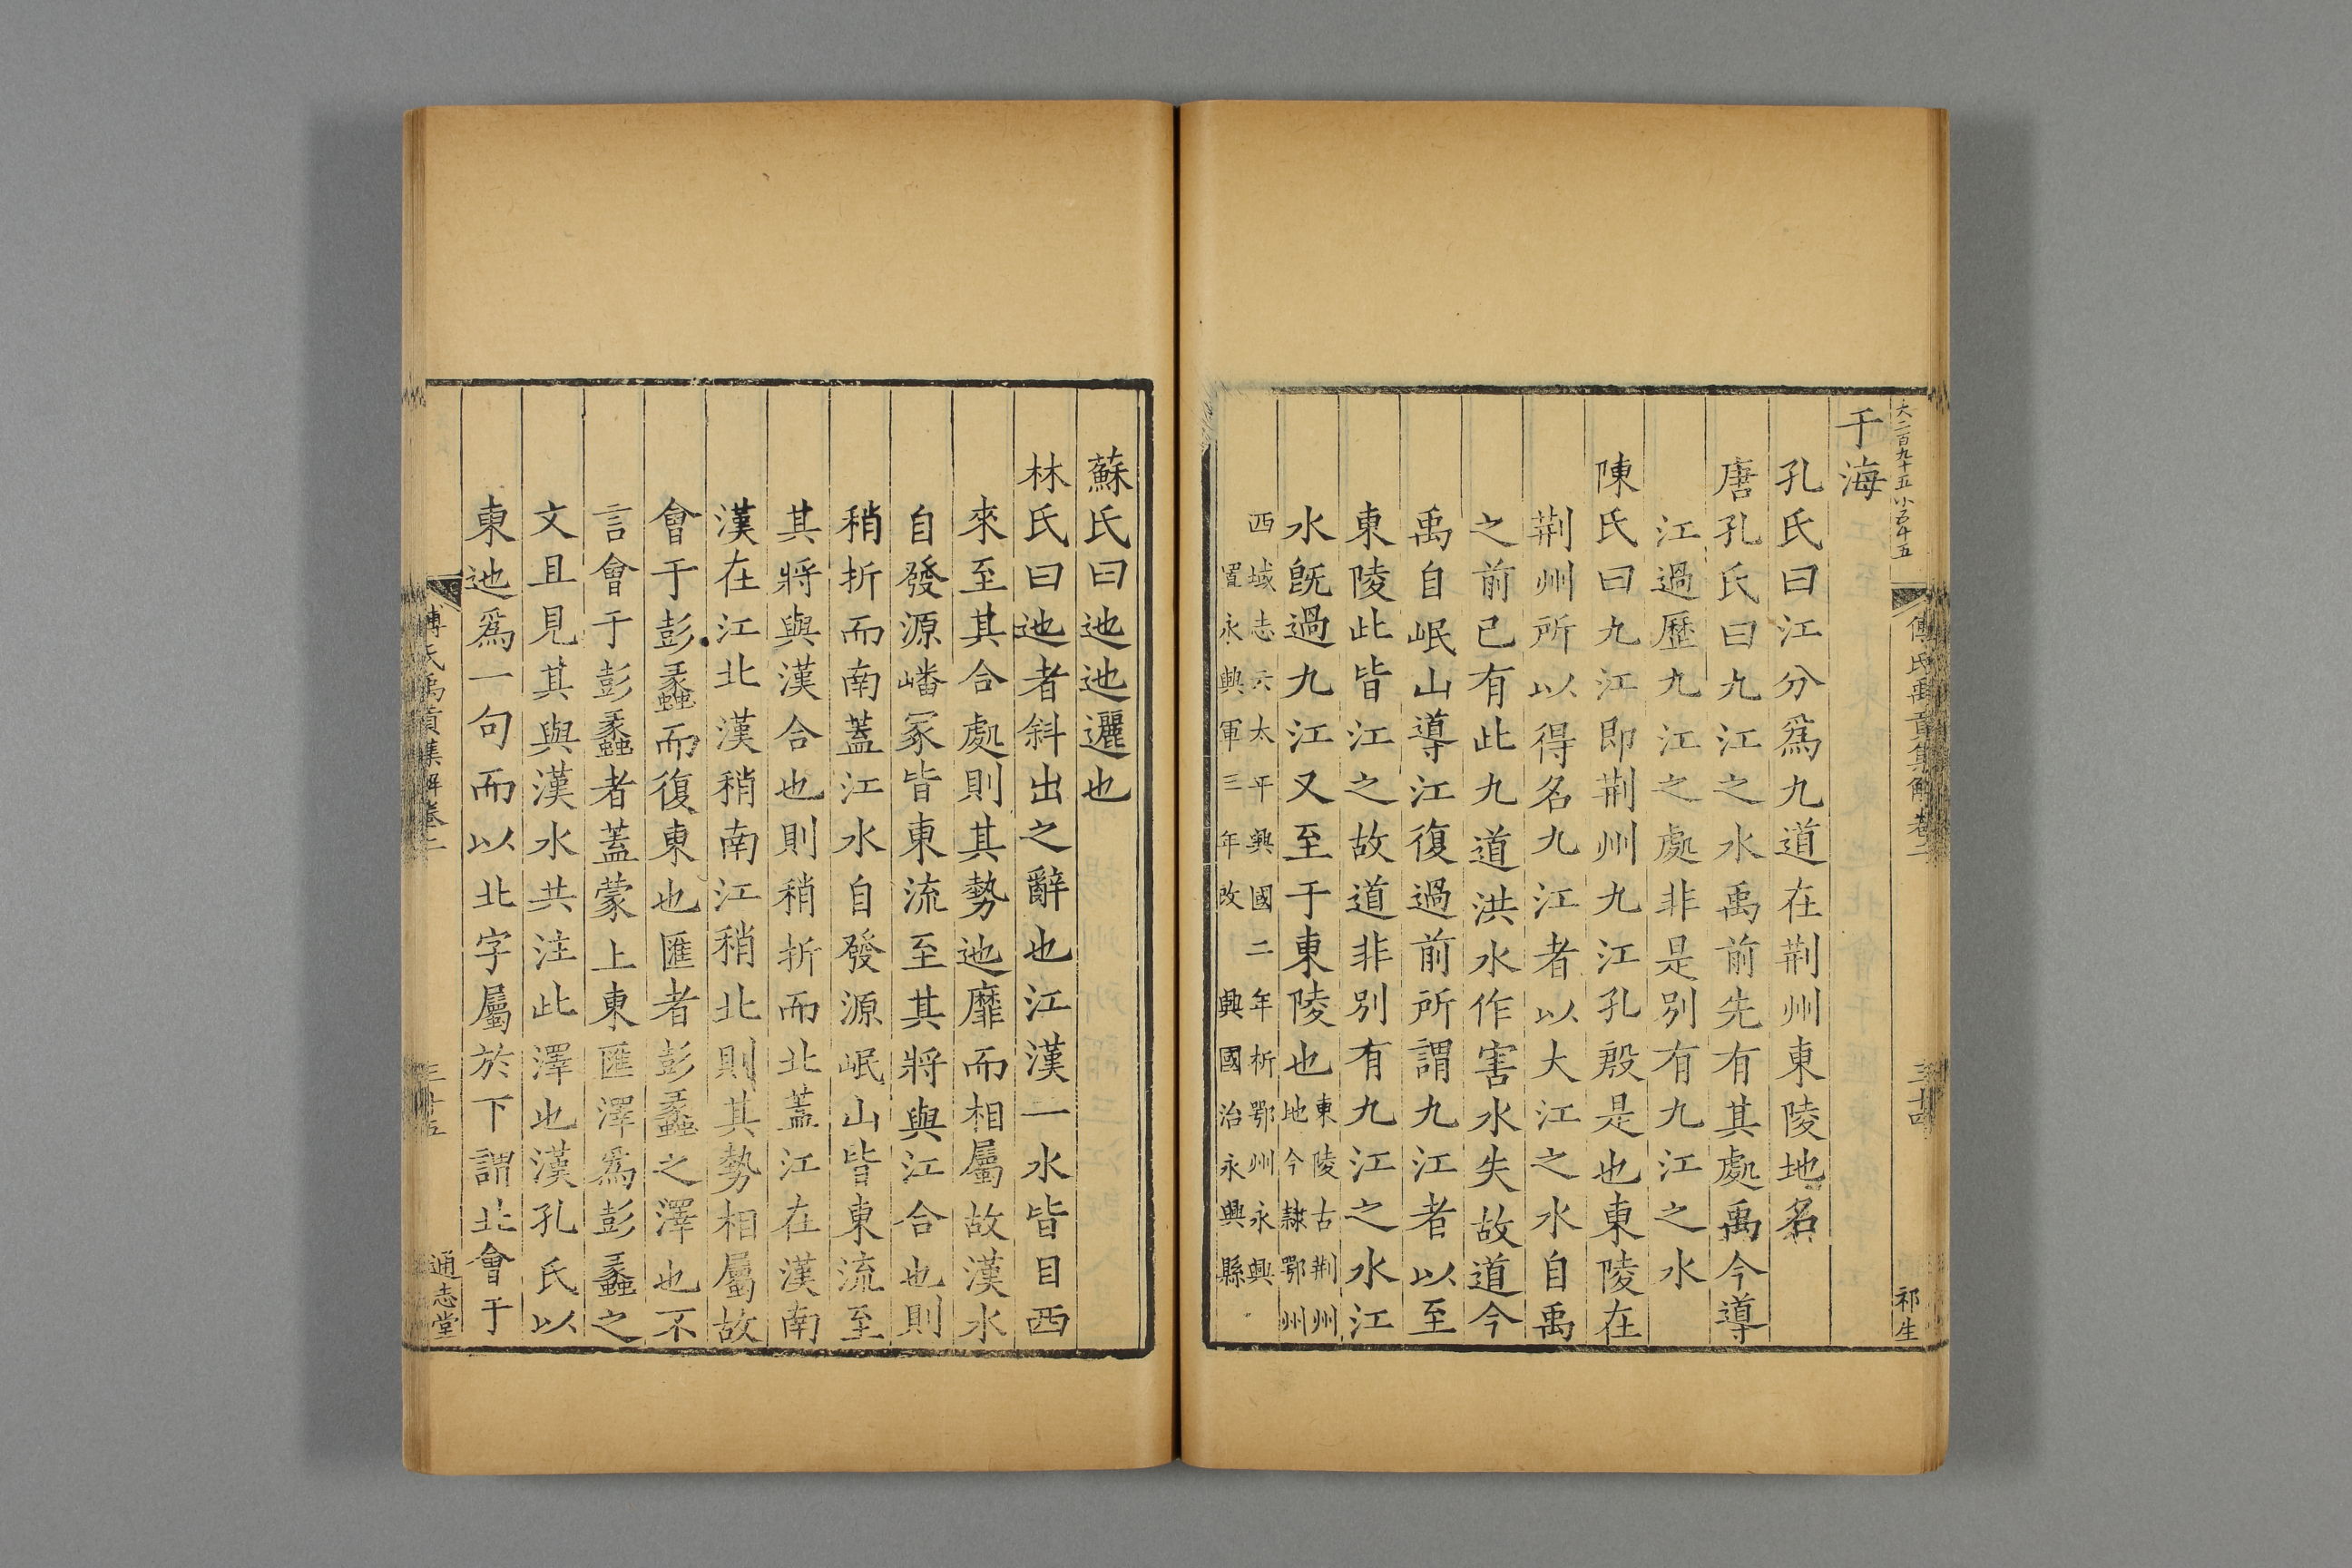 傅氏禹貢集解卷二
三十四
祁生
于海
孔氏曰江分爲九道在荆州東陵地名
唐孔氏曰九江之水禹前先有其處禹今導
江過歷九江之處非是別有九江之水
陳氏曰九江即荆州九江孔殷是也東陵在
荆州所以得名九江者以大江之水自禹
之前已有此九道洪水作害水失故道今
禹自岷山導江復過前所謂九江者以至
東陵此皆江之故道非別有九江之水江
水旣過九江又至于東陵也東陵古荆州
地今隷鄂州
西域志云太平興國二年析鄂州永興
置永興軍三年改興國治永興縣
蘇氏曰迆迆邐也
林氏曰迆者斜出之辭也江漢一水皆目西
來至其合處則其勢迆靡而相屬故漢水
自發源嶓冢皆東流至其將與江合也則
稍折而南蓋江水自發源岷山皆東流至
其將與漢合也則稍折而北蓋江在漢南
漢在江北漢稍南江稍北則其勢相屬故
會于彭蠡而復東也匯者彭蠡之澤也不
言會于彭蠡者蓋蒙上東匯澤爲彭蠡之
文且見其與漢水共注此澤也漢孔氏以
東迆爲一句而以北字屬於下謂北會于
傅氏禹貢集解卷二
三十五
通志堂